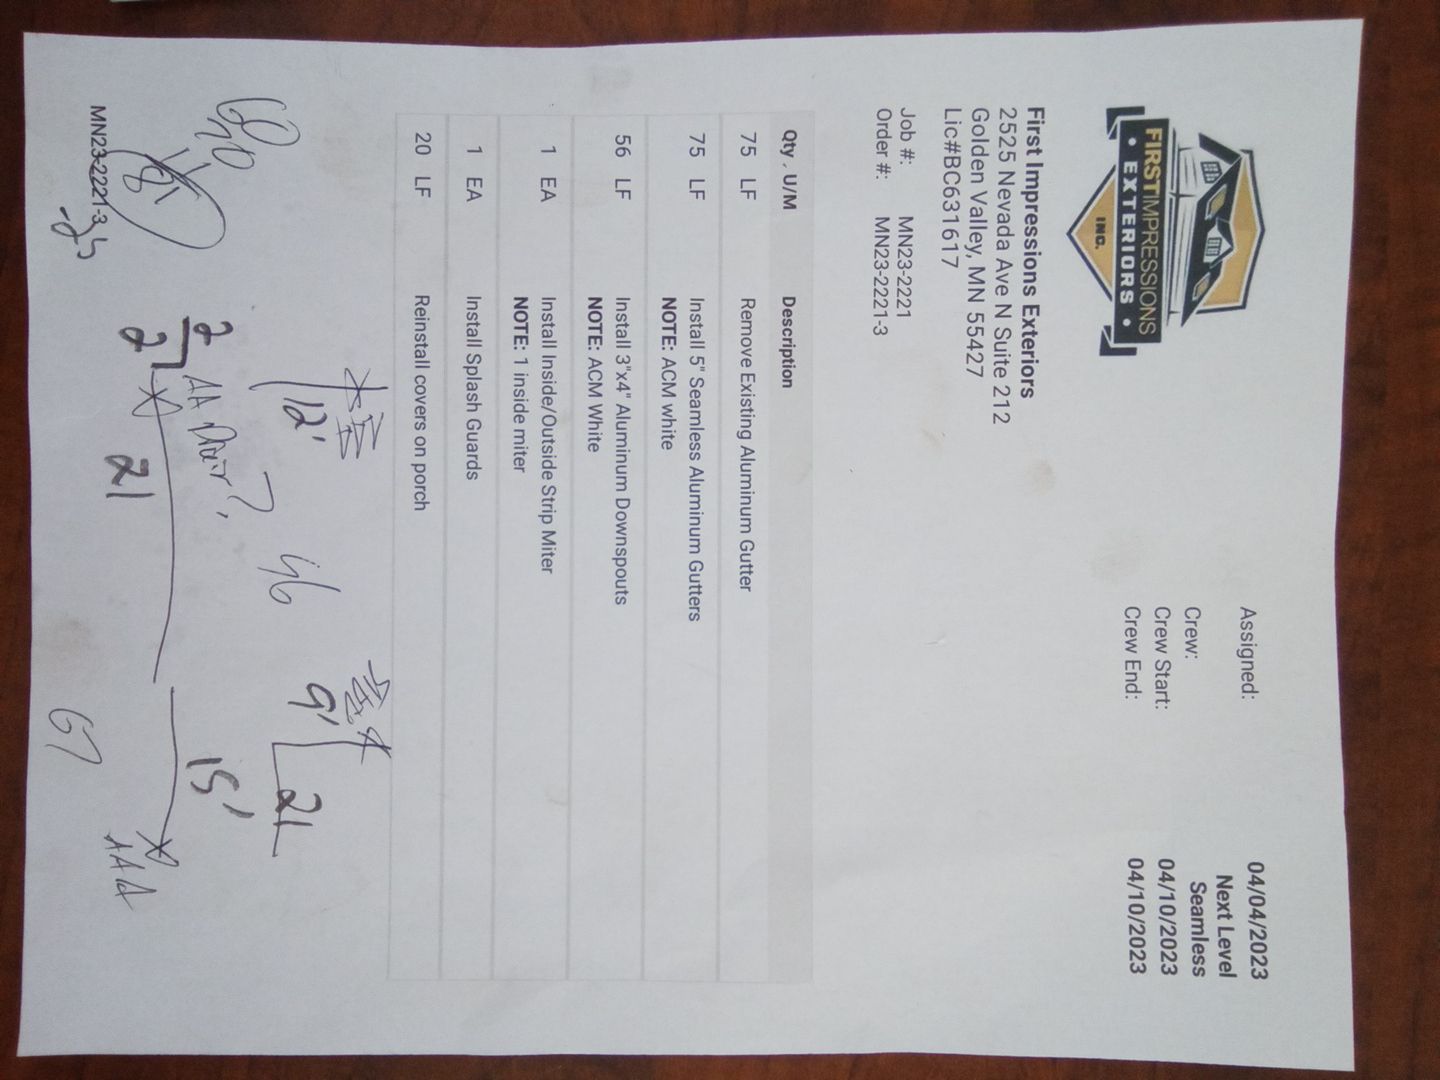 FIRSTIMPRESSIONS
• EXTERIORS •
INC.
Assigned: 04/04/2023
Crew: Next Level Seamless
Crew Start: 04/10/2023
Crew End: 04/10/2023
First Impressions Exteriors
2525 Nevada Ave N Suite 212
Golden Valley, MN 55427
Lic#BC631617
Job #: MN23-2221
Order #: MN23-2221-3
Qty. U/M Description
75 LF Remove Existing Aluminum Gutter
75 LF Install 5" Seamless Aluminum Gutters
NOTE: ACM white
56 LF Install 3"x4" Aluminum Downspouts
NOTE: ACM White
1 EA Install Inside/Outside Strip Miter
NOTE: 1 inside miter
1 EA Install Splash Guards
20 LF Reinstall covers on porch
12'
9'
21
46
2
AA
?
15'
2
21
AAA
67
MN23-2221-3